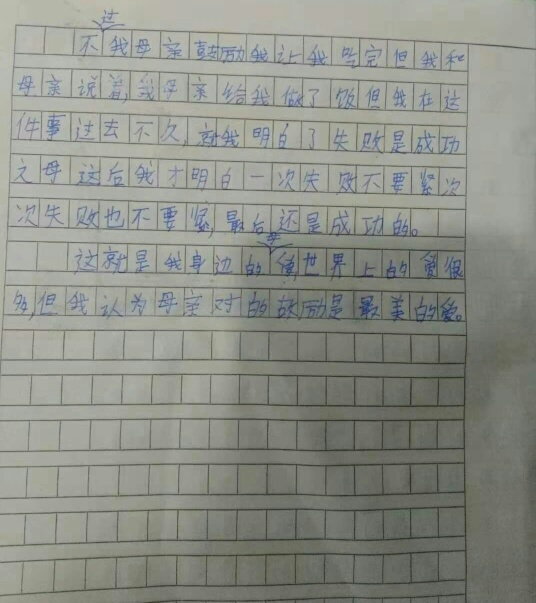 不过我母亲鼓励我让我吃完但我和
母亲说着,我母亲给我做了饭但我在这
件事过去不久,就我明白了失败是成功
之母这后我才明白一次失败不要紧次
次失败也不要紧,最后还是成功的。
这就是我身边的爱世界上的爱很
多,但我认为母亲对的鼓励是最美的爱。